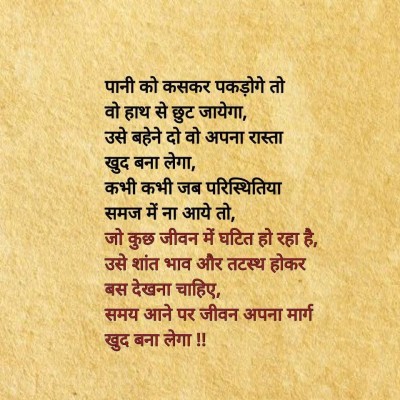 पानी को कसकर पकड़ोगे तो
वो हाथ से छुट जायेगा,
उसे बहेने दो वो अपना रास्ता
खुद बना लेगा,
कभी कभी जब परिस्थितिया
समज में ना आये तो,
जो कुछ जीवन में घटित हो रहा है,
उसे शांत भाव और तटस्थ होकर
बस देखना चाहिए,
समय आने पर जीवन अपना मार्ग
खुद बना लेगा !!